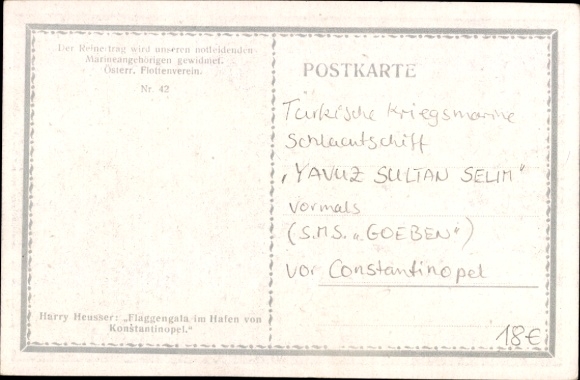 Der Reinertrag wird unseren notleidenden
Marineangehörigen gewidmet.
Österr. Flottenverein.
Nr. 42
Harry Heusser: „Flaggengala im Hafen von
Konstantinopel.“
POSTKARTE
Türkische Kriegsmarine
Schlachtschiff
„YAVUZ SULTAN SELIM“
vormals
(S.M.S. „GOEBEN“)
vor Constantinopel
18€